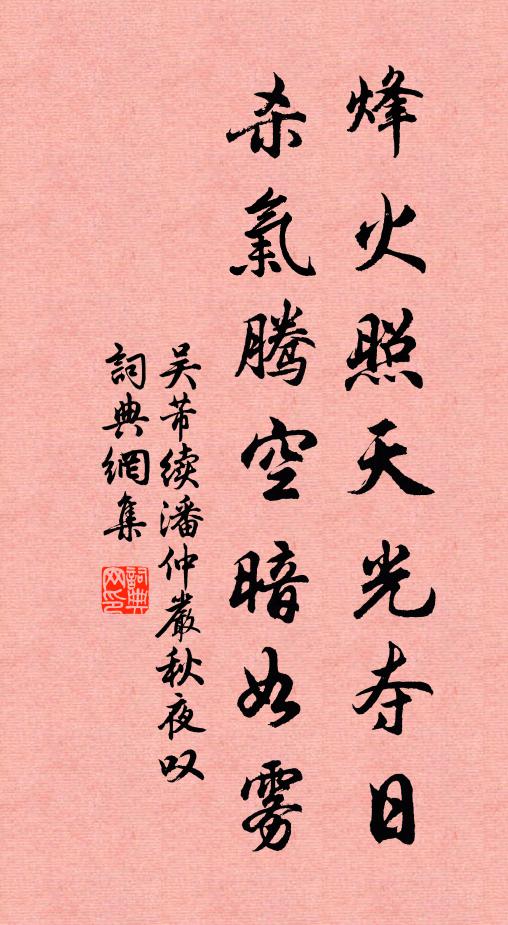 烽火照天光夺日
杀氣腾空暗如雾
吴芾续潘仲嚴秋夜叹
詞典網集
詞典网印